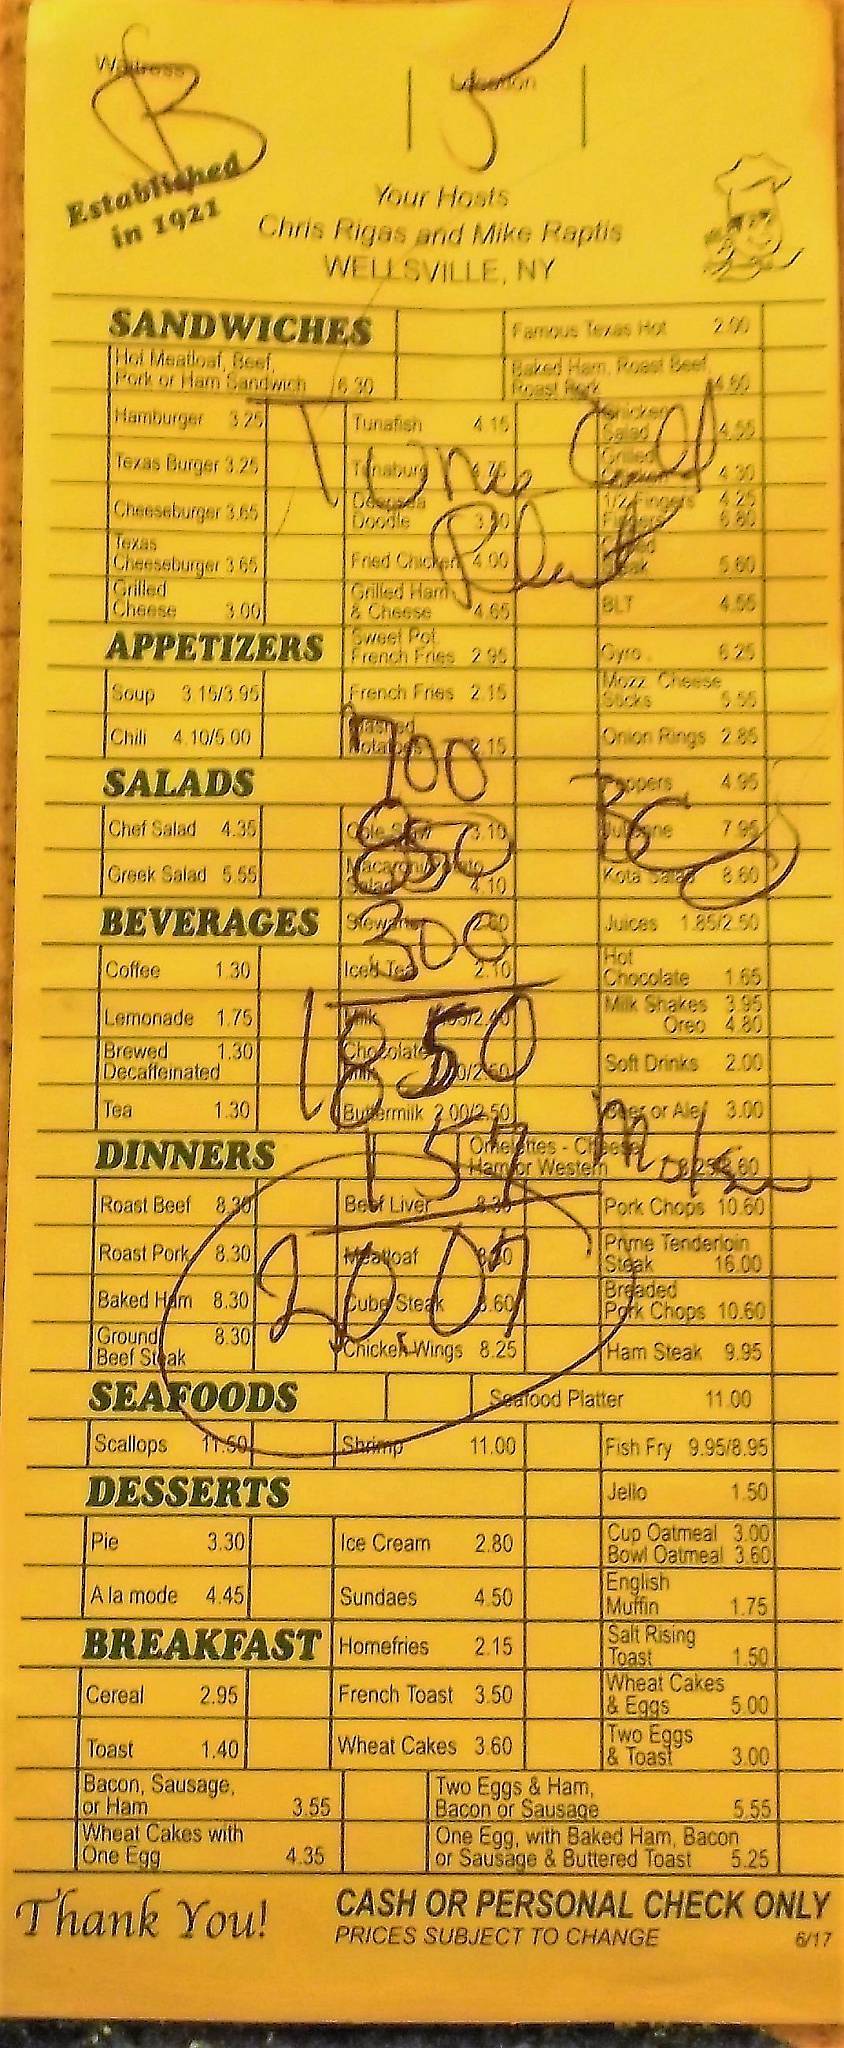 Waitress Location
B 5
Established
in 1921
Your Hosts
Chris Rigas and Mike Raptis
WELLSVILLE, NY
SANDWICHES Famous Texas Hot 2.00
Hot Meatloaf, Beef,
Pork or Ham Sandwich 6.30 Baked Ham, Roast Beef,
Roast Pork 4.60
Hamburger 3.25 Tunafish 4.15 Chicken
Salad 4.55
Texas Burger 3.25 Tunaburg 4.75 Grilled
Chicken 4.30
Tuna Cold
Plate
Cheeseburger 3.65 Deepsea
Doodle 1/2 Fingers 4.25
Fingers 6.80
Texas
Cheeseburger 3.65 Fried Chicken 4.00 Steak 5.60
Grilled
Cheese 3.00 Grilled Ham
& Cheese 4.65 BLT 4.55
APPETIZERS Sweet Pot.
French Fries 2.95 Gyro 6.25
Soup 3.15/3.95 French Fries 2.15 Mozz. Cheese
Sticks 5.55
Chili 4.10/5.00 Mashed
Potatoes 2.15 Onion Rings 2.85
700
SALADS Poppers 4.95
Chef Salad 4.35 Cole Slaw 3.10 Julienne 7.95
850
Greek Salad 5.55 Macaroni/Potato
Salad 4.10 Kota Salad 8.60
BEVERAGES Stewart's Juices 1.85/2.50
300
Coffee 1.30 Iced Tea 2.10 Hot
Chocolate 1.65
Lemonade 1.75 Milk Milk Shakes 3.95
Oreo 4.80
1850
Brewed
Decaffeinated 1.30 Chocolate
Milk Soft Drinks 2.00
Tea 1.30 Buttermilk 2.00/2.50 Beer or Ale 3.00
157
DINNERS Omelettes - Cheese
Ham or Western
Roast Beef 8.30 Beef Liver 8.30 Pork Chops 10.60
Roast Pork 8.30 Meatloaf 8.30 Prime Tenderloin
Steak 16.00
20.07
Baked Ham 8.30 Cube Steak 8.60 Breaded
Pork Chops 10.60
Ground
Beef Steak 8.30 Chicken Wings 8.25 Ham Steak 9.95
SEAFOODS Seafood Platter 11.00
Scallops 11.50 Shrimp 11.00 Fish Fry 9.95/8.95
DESSERTS Jello 1.50
Pie 3.30 Ice Cream 2.80 Cup Oatmeal 3.00
Bowl Oatmeal 3.60
A la mode 4.45 Sundaes 4.50 English
Muffin 1.75
BREAKFAST Homefries 2.15 Salt Rising
Toast 1.50
Cereal 2.95 French Toast 3.50 Wheat Cakes
& Eggs 5.00
Toast 1.40 Wheat Cakes 3.60 Two Eggs
& Toast 3.00
Bacon, Sausage,
or Ham 3.55 Two Eggs & Ham,
Bacon or Sausage 5.55
Wheat Cakes with
One Egg 4.35 One Egg, with Baked Ham, Bacon
or Sausage & Buttered Toast 5.25
Thank You! CASH OR PERSONAL CHECK ONLY
PRICES SUBJECT TO CHANGE 6/17